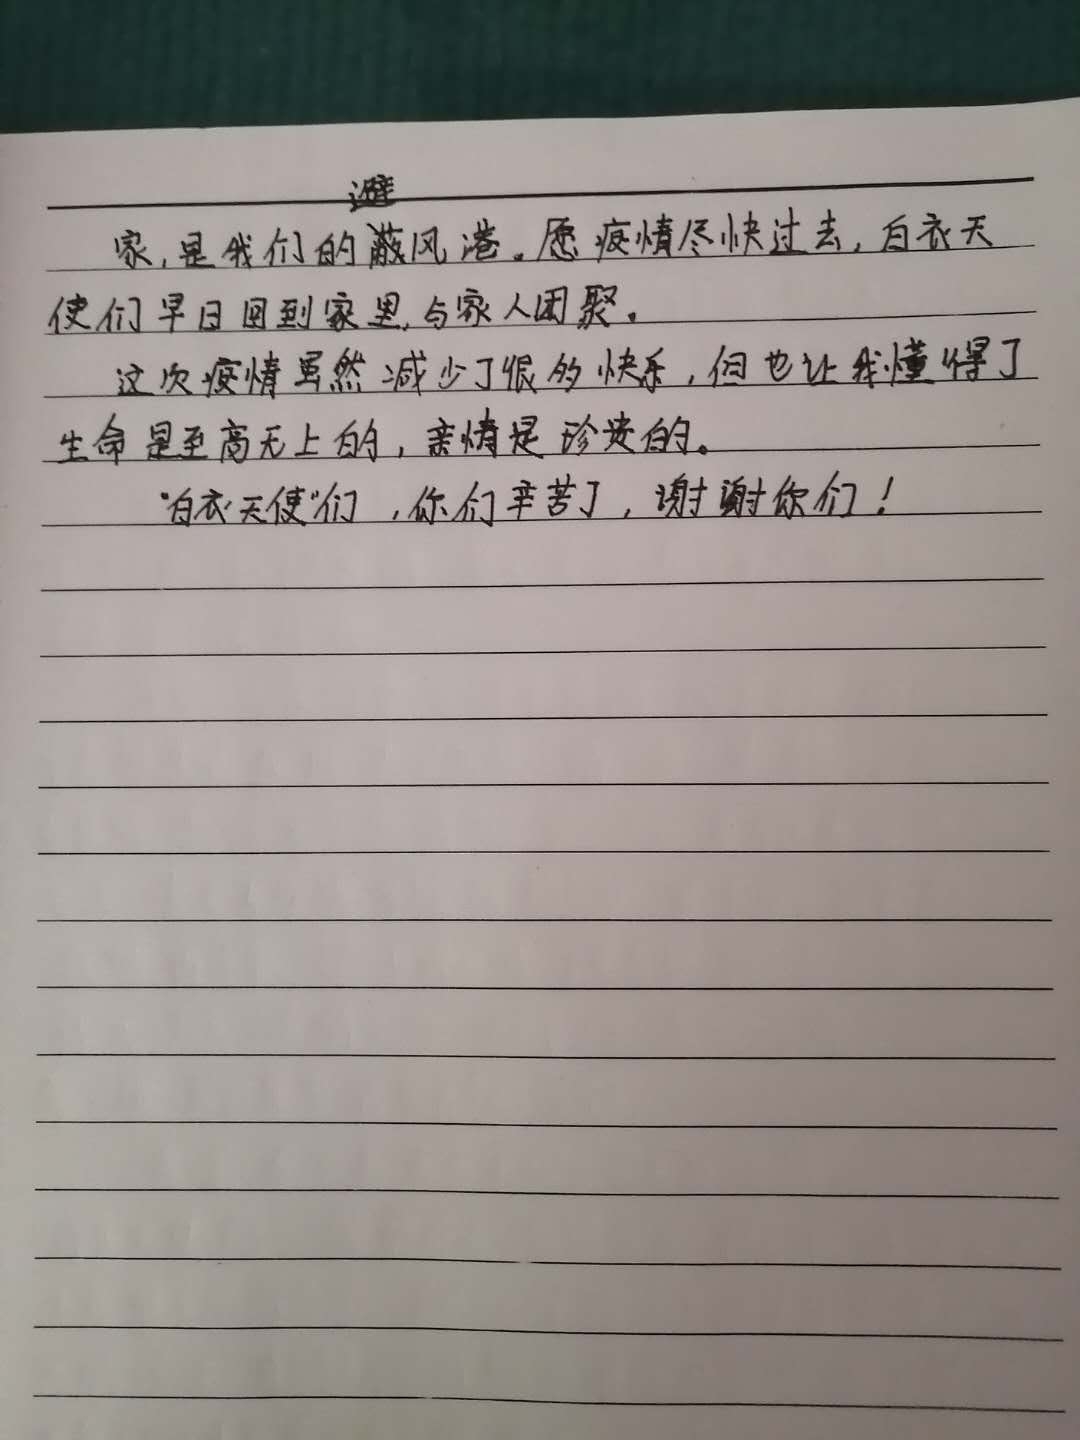 避
家,是我们的蔽风港。愿疫情尽快过去,白衣天
使们早日回到家里,与家人团聚。
这次疫情虽然减少了很多快乐,但也让我懂得了
生命是至高无上的,亲情是珍贵的。
“白衣天使”们,你们辛苦了,谢谢你们!